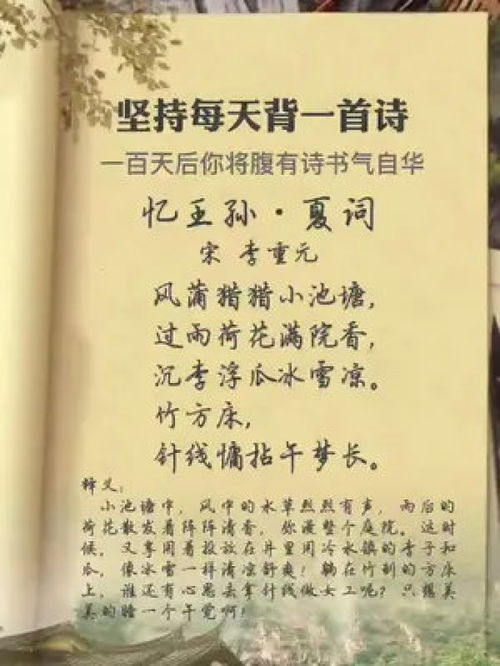 坚持每天背一首诗
一百天后你将腹有诗书气自华
忆王孙·夏词
宋 李重元
风蒲猎猎小池塘，
过雨荷花满院香，
沉李浮瓜冰雪凉。
竹方床，
针线慵拈午梦长。
释义：
小池塘中，风中的水草烈烈有声，雨后的
荷花散发着阵阵清香，弥漫整个庭院。这时
候，又享用着投放在井里用冷水镇的李子和
瓜，像冰雪一样清凉舒爽！躺在竹制的方床
上，谁还有心思去拿针线做女工呢？只想美
美的睡一个午觉啊！